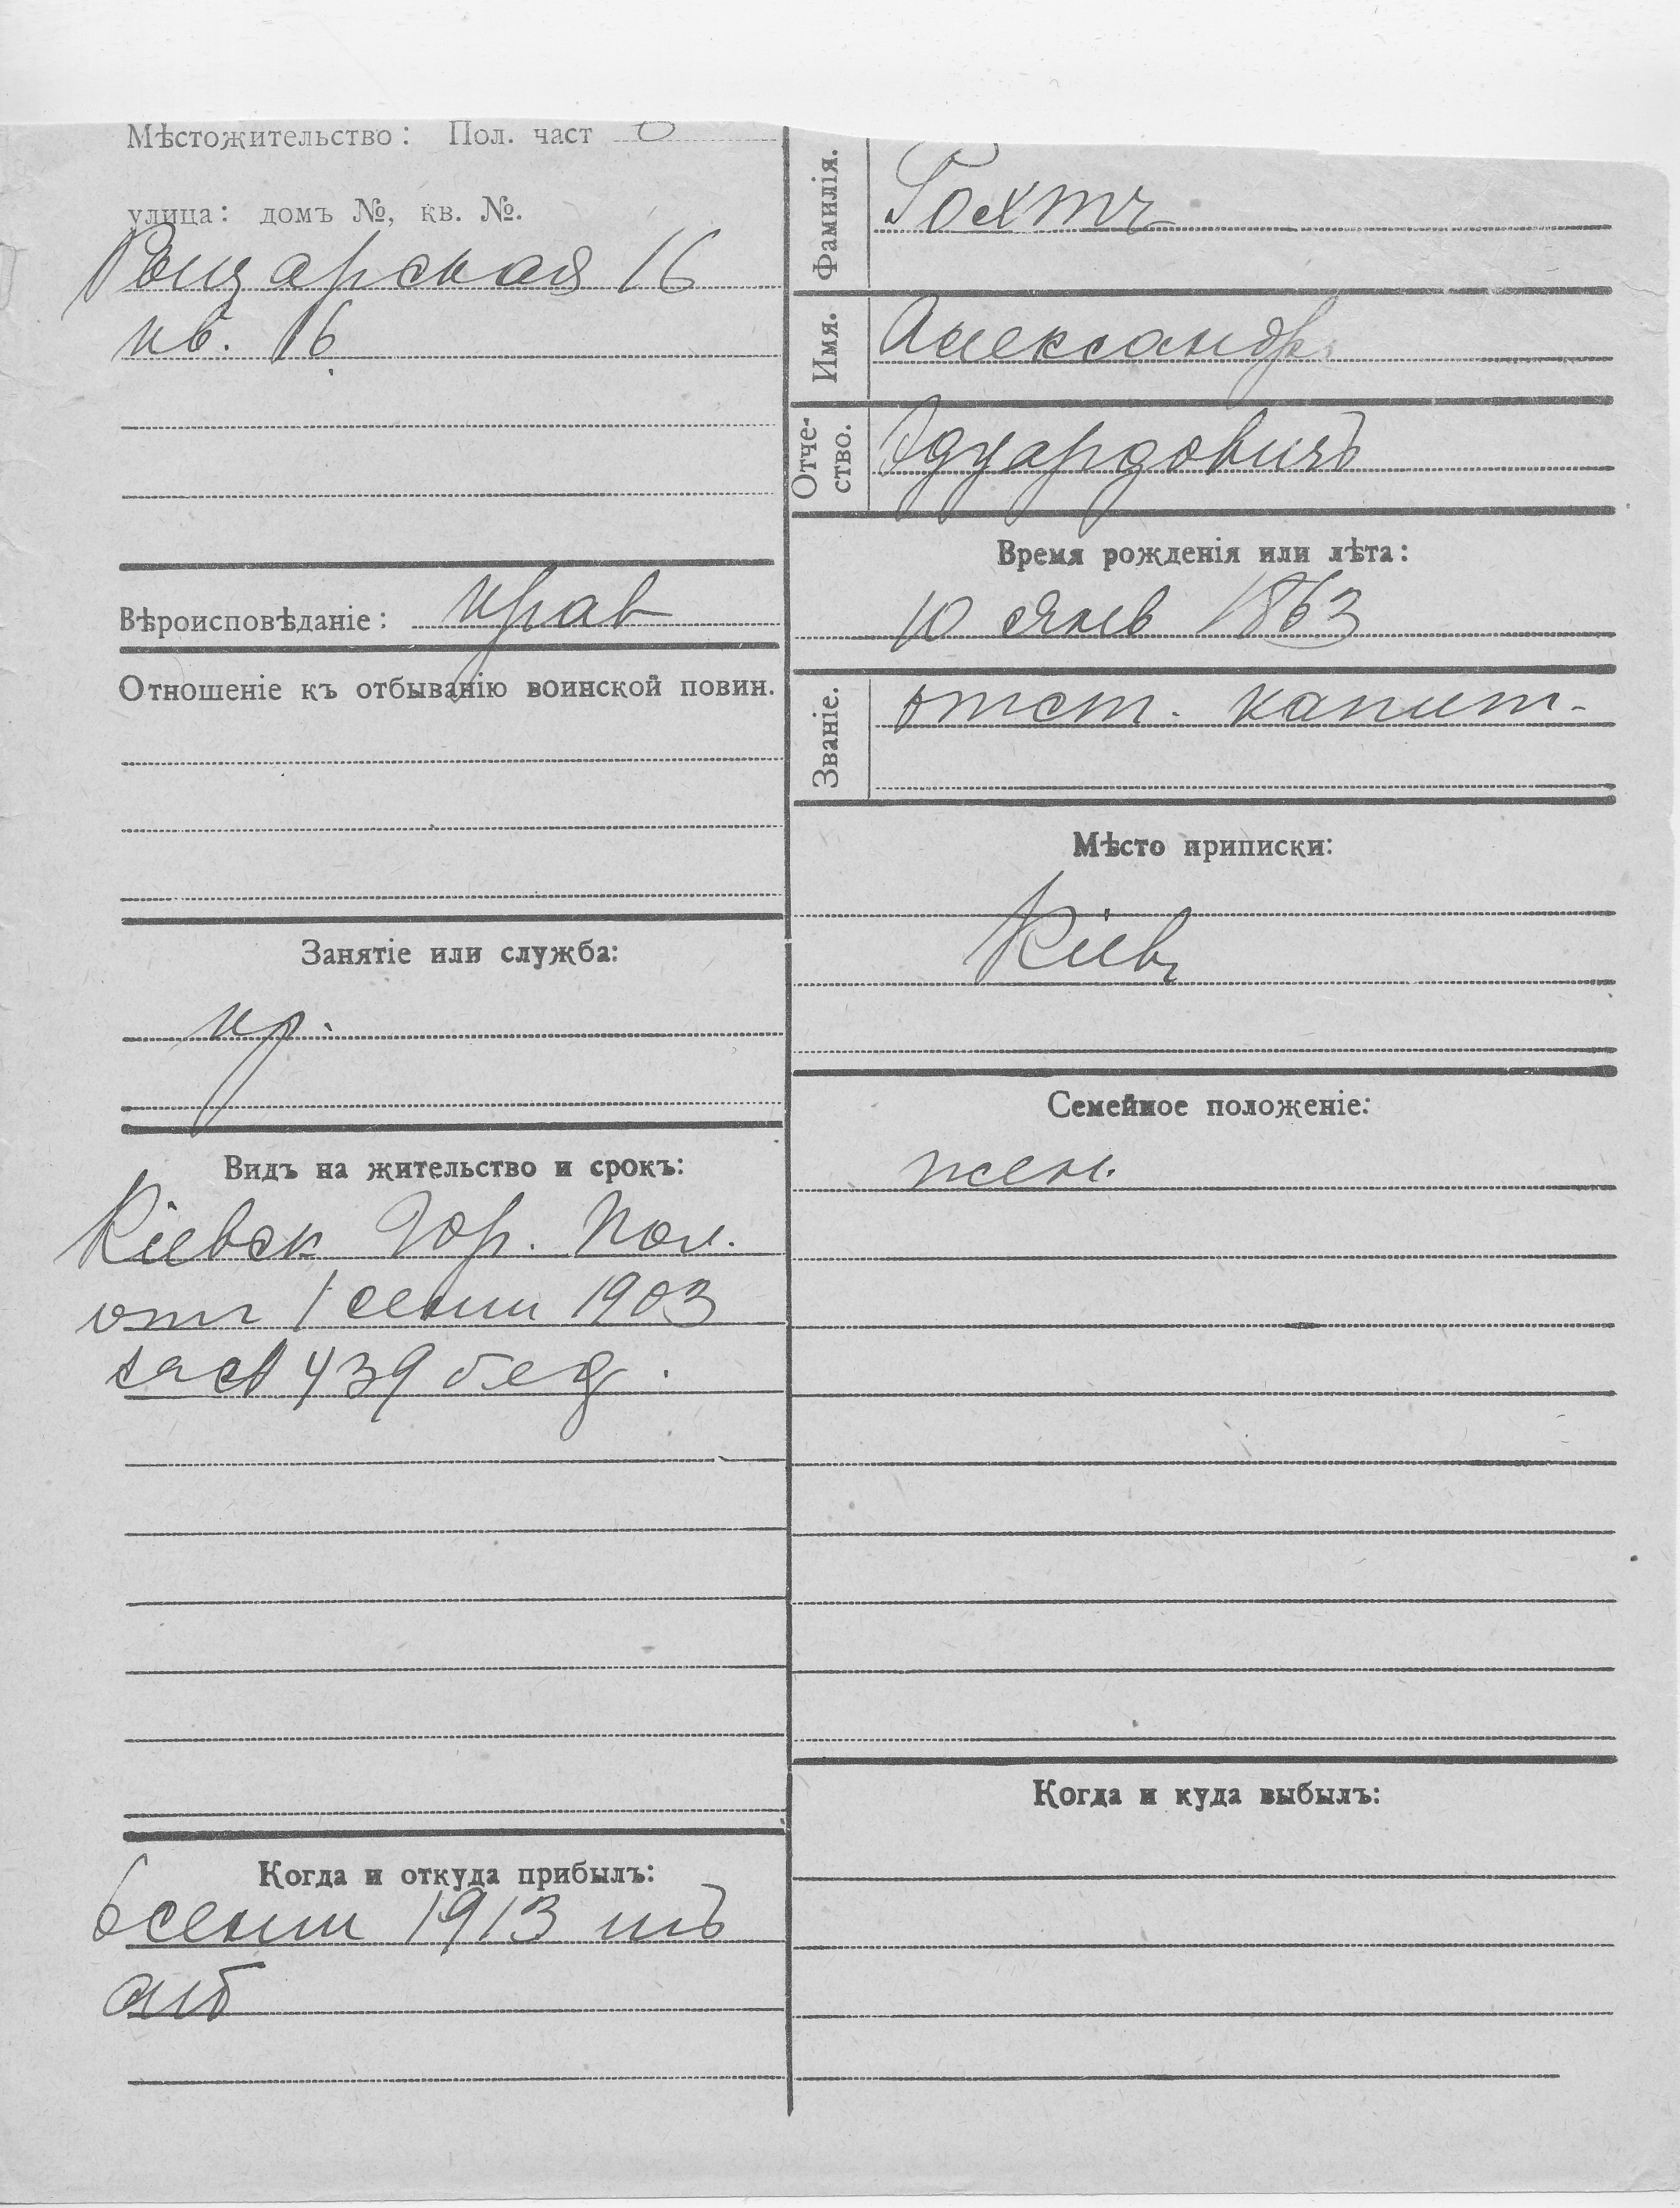 Мѣстожительство: Пол. част
улица: домъ №, кв. №.
Рыцарская 16
кв. 16
Вѣроисповѣданіе: прав
Отношеніе къ отбыванію воинской повин.
Занятіе или служба:
пр.
Видъ на жительство и срокъ:
Кіевск Гор. Пол.
отъ 1 сент 1903
за № 439 бед.
Когда и откуда прибылъ:
6 сент 1913 изъ
Фамилія.
Гохтъ
Имя.
Александръ
Отче-
ство.
Эдуардовичъ
Время рожденія или лѣта:
10 Янв 1863
Званіе.
отст. капит.
Мѣсто приписки:
Кіевъ
Семейное положеніе:
жен.
Когда и куда выбылъ: